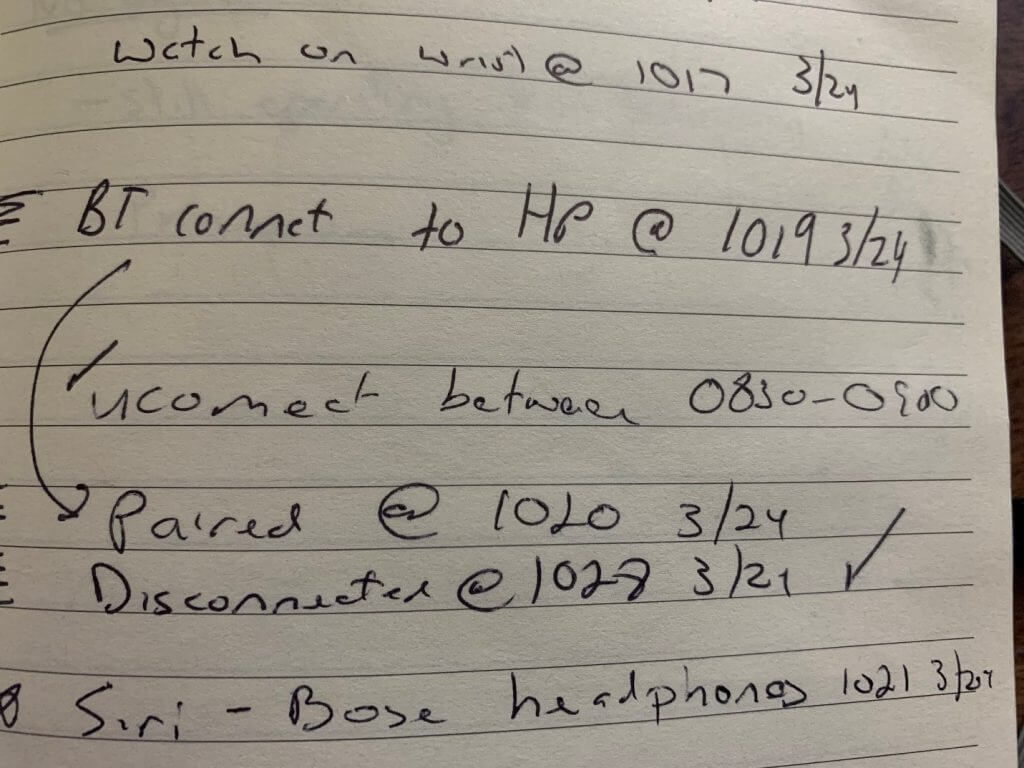 Watch on wrist @ 1017 3/24
BT connet to HP @ 1019 3/24
uconnect between 0830-0900
Paired @ 1020 3/24
Disconnected @ 1028 3/24
Siri - Bose headphones 1021 3/24